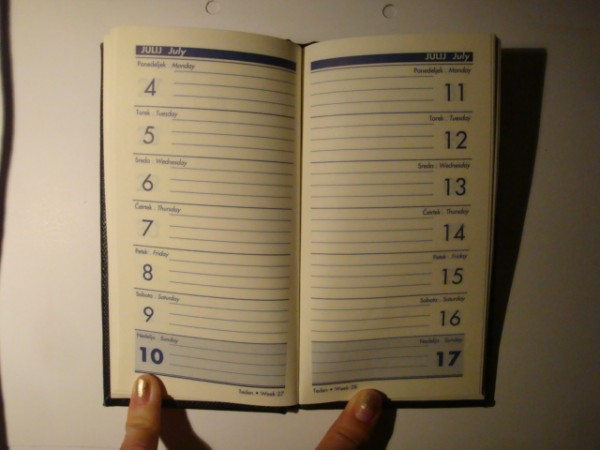 JULIJ July
Ponedeljek . Monday
4
Torek . Tuesday
5
Sreda . Wednesday
6
Četrtek . Thursday
7
Petek . Friday
8
Sobota . Saturday
9
Nedelja . Sunday
10
Teden • Week 27
JULIJ July
Ponedeljek . Monday
11
Torek . Tuesday
12
Sreda . Wednesday
13
Četrtek . Thursday
14
Petek . Friday
15
Sobota . Saturday
16
Nedelja . Sunday
17
Teden • Week 28